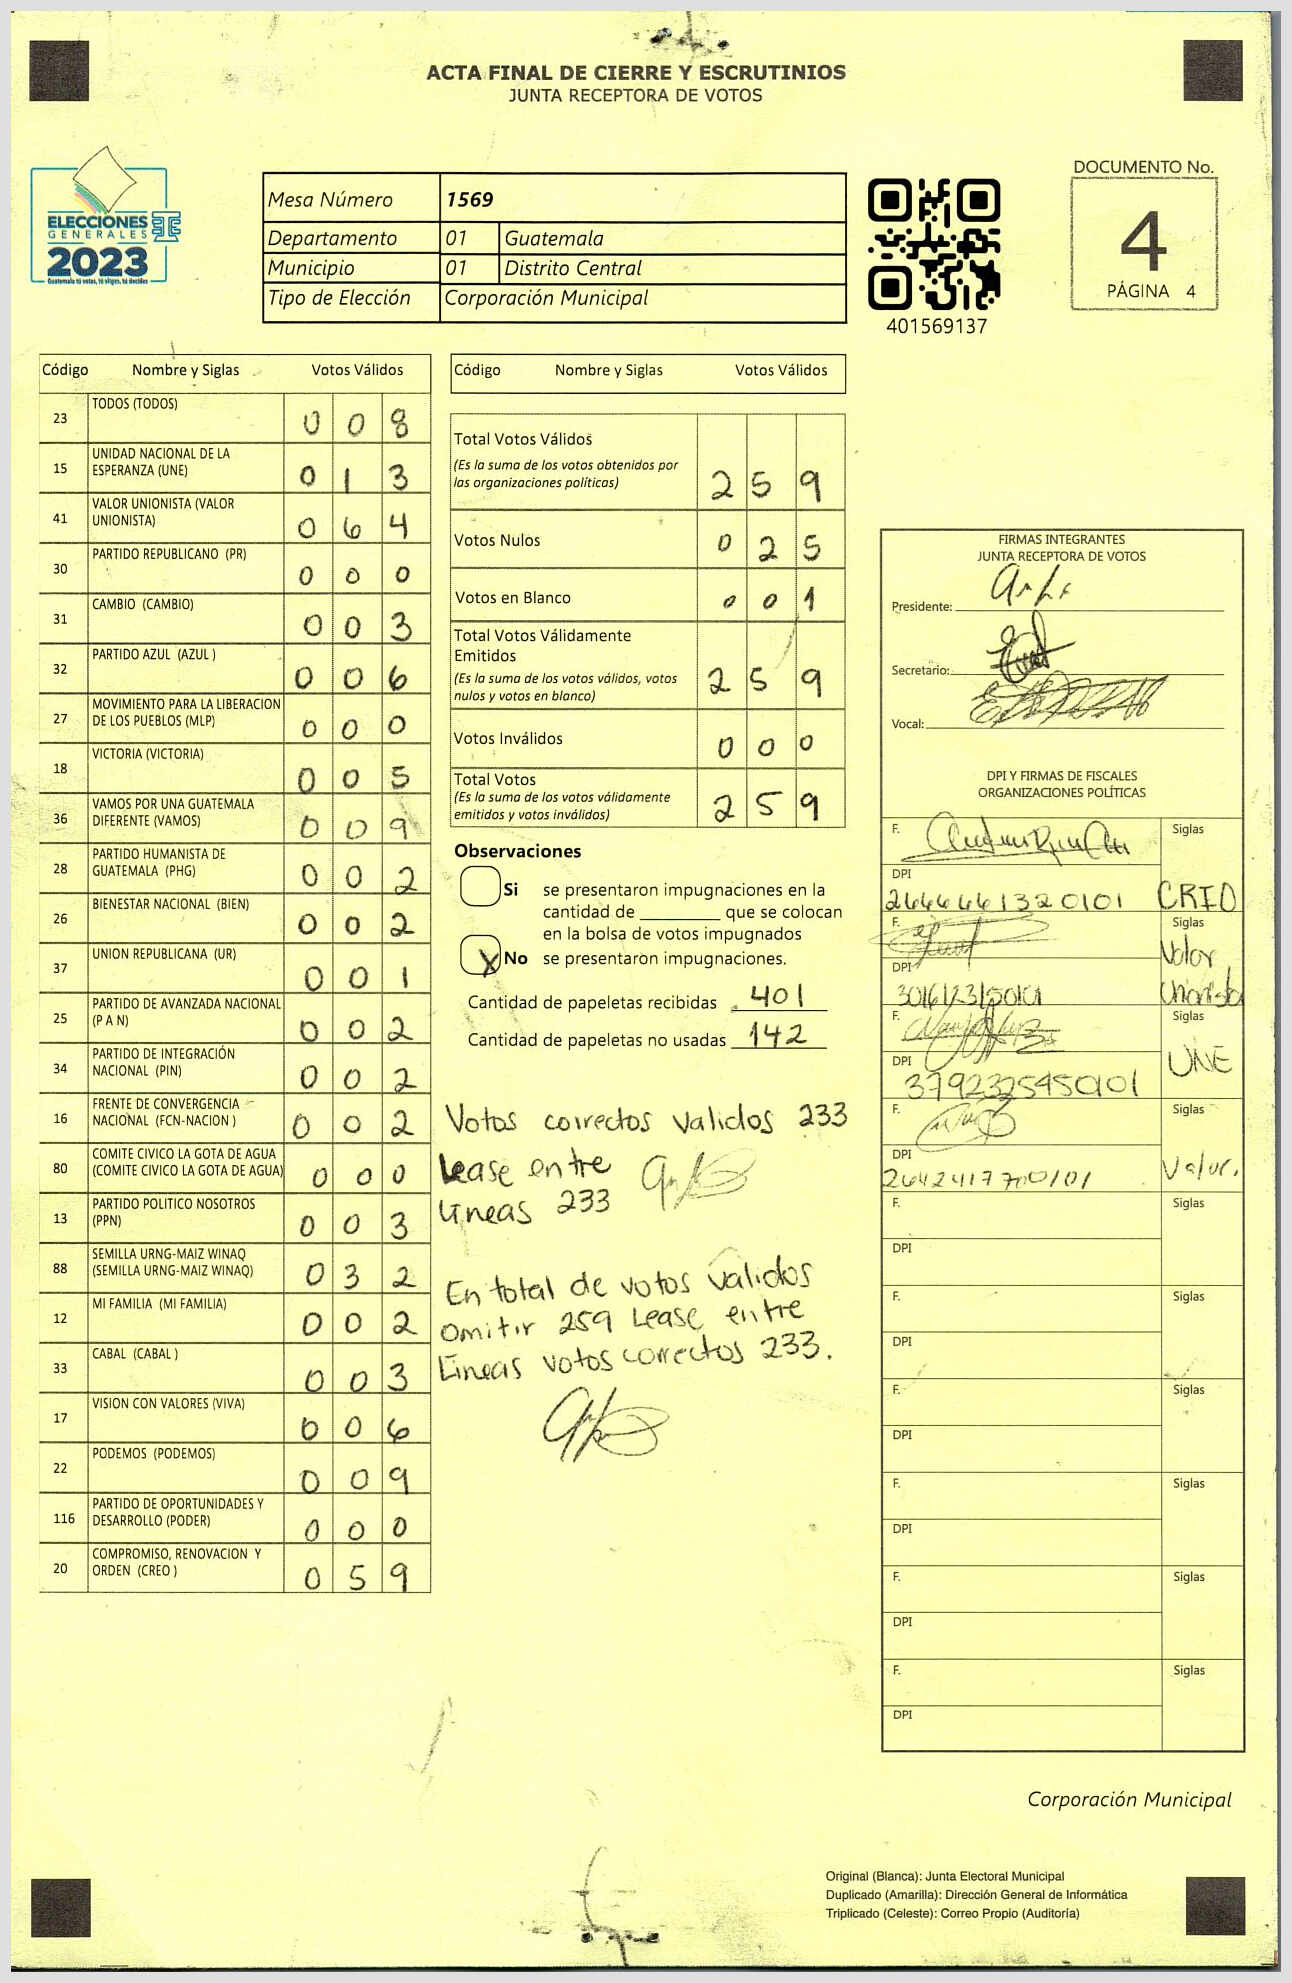 ACTA FINAL DE CIERRE Y ESCRUTINIOS
JUNTA RECEPTORA DE VOTOS
ELECCIONES
GENERALES
2023
Guatemala tú votas, tú eliges, tú decides
Mesa Número 1569
Departamento 01 Guatemala
Municipio 01 Distrito Central
Tipo de Elección Corporación Municipal
401569137
DOCUMENTO No.
4
PÁGINA 4
Código Nombre y Siglas Votos Válidos
23 TODOS (TODOS) 0 0 8
15 UNIDAD NACIONAL DE LA ESPERANZA (UNE) 0 1 3
41 VALOR UNIONISTA (VALOR UNIONISTA) 0 6 4
30 PARTIDO REPUBLICANO (PR) 0 0 0
31 CAMBIO (CAMBIO) 0 0 3
32 PARTIDO AZUL (AZUL ) 0 0 6
27 MOVIMIENTO PARA LA LIBERACION DE LOS PUEBLOS (MLP) 0 0 0
18 VICTORIA (VICTORIA) 0 0 5
36 VAMOS POR UNA GUATEMALA DIFERENTE (VAMOS) 0 0 9
28 PARTIDO HUMANISTA DE GUATEMALA (PHG) 0 0 2
26 BIENESTAR NACIONAL (BIEN) 0 0 2
37 UNION REPUBLICANA (UR) 0 0 1
25 PARTIDO DE AVANZADA NACIONAL (P A N) 0 0 2
34 PARTIDO DE INTEGRACIÓN NACIONAL (PIN) 0 0 2
16 FRENTE DE CONVERGENCIA NACIONAL (FCN-NACION ) 0 0 2
80 COMITE CIVICO LA GOTA DE AGUA (COMITE CIVICO LA GOTA DE AGUA) 0 0 0
13 PARTIDO POLITICO NOSOTROS (PPN) 0 0 3
88 SEMILLA URNG-MAIZ WINAQ (SEMILLA URNG-MAIZ WINAQ) 0 3 2
12 MI FAMILIA (MI FAMILIA) 0 0 2
33 CABAL (CABAL ) 0 0 3
17 VISION CON VALORES (VIVA) 0 0 6
22 PODEMOS (PODEMOS) 0 0 9
116 PARTIDO DE OPORTUNIDADES Y DESARROLLO (PODER) 0 0 0
20 COMPROMISO, RENOVACION Y ORDEN (CREO ) 0 5 9
Código Nombre y Siglas Votos Válidos
Total Votos Válidos
(Es la suma de los votos obtenidos por
las organizaciones políticas) 2 5 9
Votos Nulos 0 2 5
Votos en Blanco 0 0 1
Total Votos Válidamente
Emitidos
(Es la suma de los votos válidos, votos
nulos y votos en blanco) 2 5 9
Votos Inválidos 0 0 0
Total Votos
(Es la suma de los votos válidamente
emitidos y votos inválidos) 2 5 9
Observaciones
Si se presentaron impugnaciones en la
cantidad de ________ que se colocan
en la bolsa de votos impugnados
X No se presentaron impugnaciones.
Cantidad de papeletas recibidas 401
Cantidad de papeletas no usadas 142
Votos correctos validos 233
Lease entre
lineas 233
En total de votos validos
omitir 259 Lease entre
Lineas votos correctos 233.
FIRMAS INTEGRANTES
JUNTA RECEPTORA DE VOTOS
Presidente:
Secretario:
Vocal:
DPI Y FIRMAS DE FISCALES
ORGANIZACIONES POLÍTICAS
F. Siglas
DPI
2644661320101 CREO
F. Siglas
Valor
DPI
Unionista
F. Siglas
DPI UNE
3792325450101
F. Siglas
DPI Valor.
F. Siglas
DPI
F. Siglas
DPI
F. Siglas
DPI
F. Siglas
DPI
F. Siglas
DPI
F. Siglas
DPI
Corporación Municipal
Original (Blanca): Junta Electoral Municipal
Duplicado (Amarilla): Dirección General de Informática
Triplicado (Celeste): Correo Propio (Auditoría)